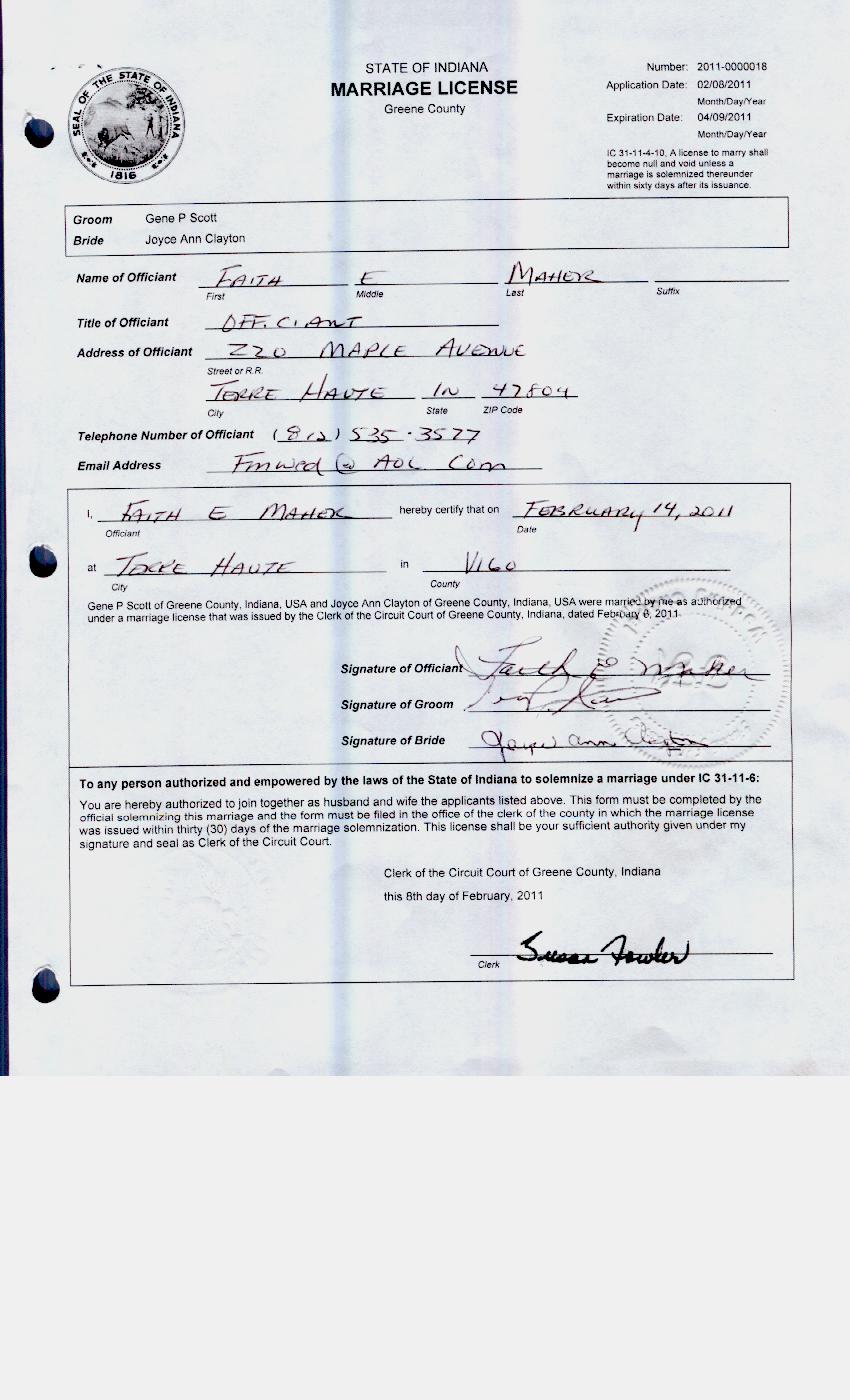 SEAL OF THE STATE OF INDIANA
1816
STATE OF INDIANA
MARRIAGE LICENSE
Greene County
Number: 2011-0000018
Application Date: 02/08/2011
Month/Day/Year
Expiration Date: 04/09/2011
Month/Day/Year
IC 31-11-4-10, A license to marry shall
become null and void unless a
marriage is solemnized thereunder
within sixty days after its issuance.
Groom Gene P Scott
Bride Joyce Ann Clayton
Name of Officiant FAITH E MAHER
First Middle Last Suffix
Title of Officiant OFFICIANT
Address of Officiant 220 MAPLE AVENUE
Street or R.R.
TERRE HAUTE IN 47804
City State ZIP Code
Telephone Number of Officiant (812) 535-3577
Email Address Fmwed @ AOL Com
I, FAITH E MAHER hereby certify that on FEBRUARY 14, 2011
Officiant Date
at TERRE HAUTE in VIGO
City County
Gene P Scott of Greene County, Indiana, USA and Joyce Ann Clayton of Greene County, Indiana, USA were married by me as authorized
under a marriage license that was issued by the Clerk of the Circuit Court of Greene County, Indiana, dated February 8, 2011.
Signature of Officiant Faith E Maher
Signature of Groom
Signature of Bride Joyce Ann Clayton
To any person authorized and empowered by the laws of the State of Indiana to solemnize a marriage under IC 31-11-6:
You are hereby authorized to join together as husband and wife the applicants listed above. This form must be completed by the
official solemnizing this marriage and the form must be filed in the office of the clerk of the county in which the marriage license
was issued within thirty (30) days of the marriage solemnization. This license shall be your sufficient authority given under my
signature and seal as Clerk of the Circuit Court.
Clerk of the Circuit Court of Greene County, Indiana
this 8th day of February, 2011
Susan Fowler
Clerk